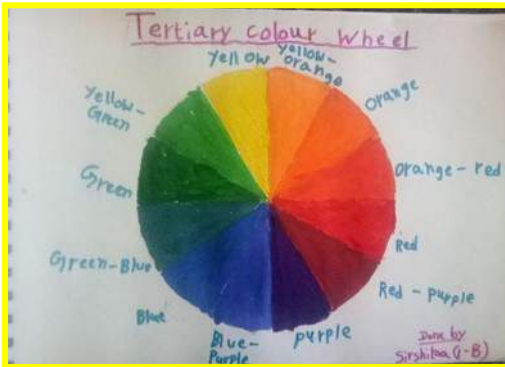 Tertiary colour wheel
Yellow
Yellow-
orange
orange
orange-red
Red
Red-purple
purple
Blue-
Purple
Blue
Green-Blue
Green
Yellow-
Green
Done by